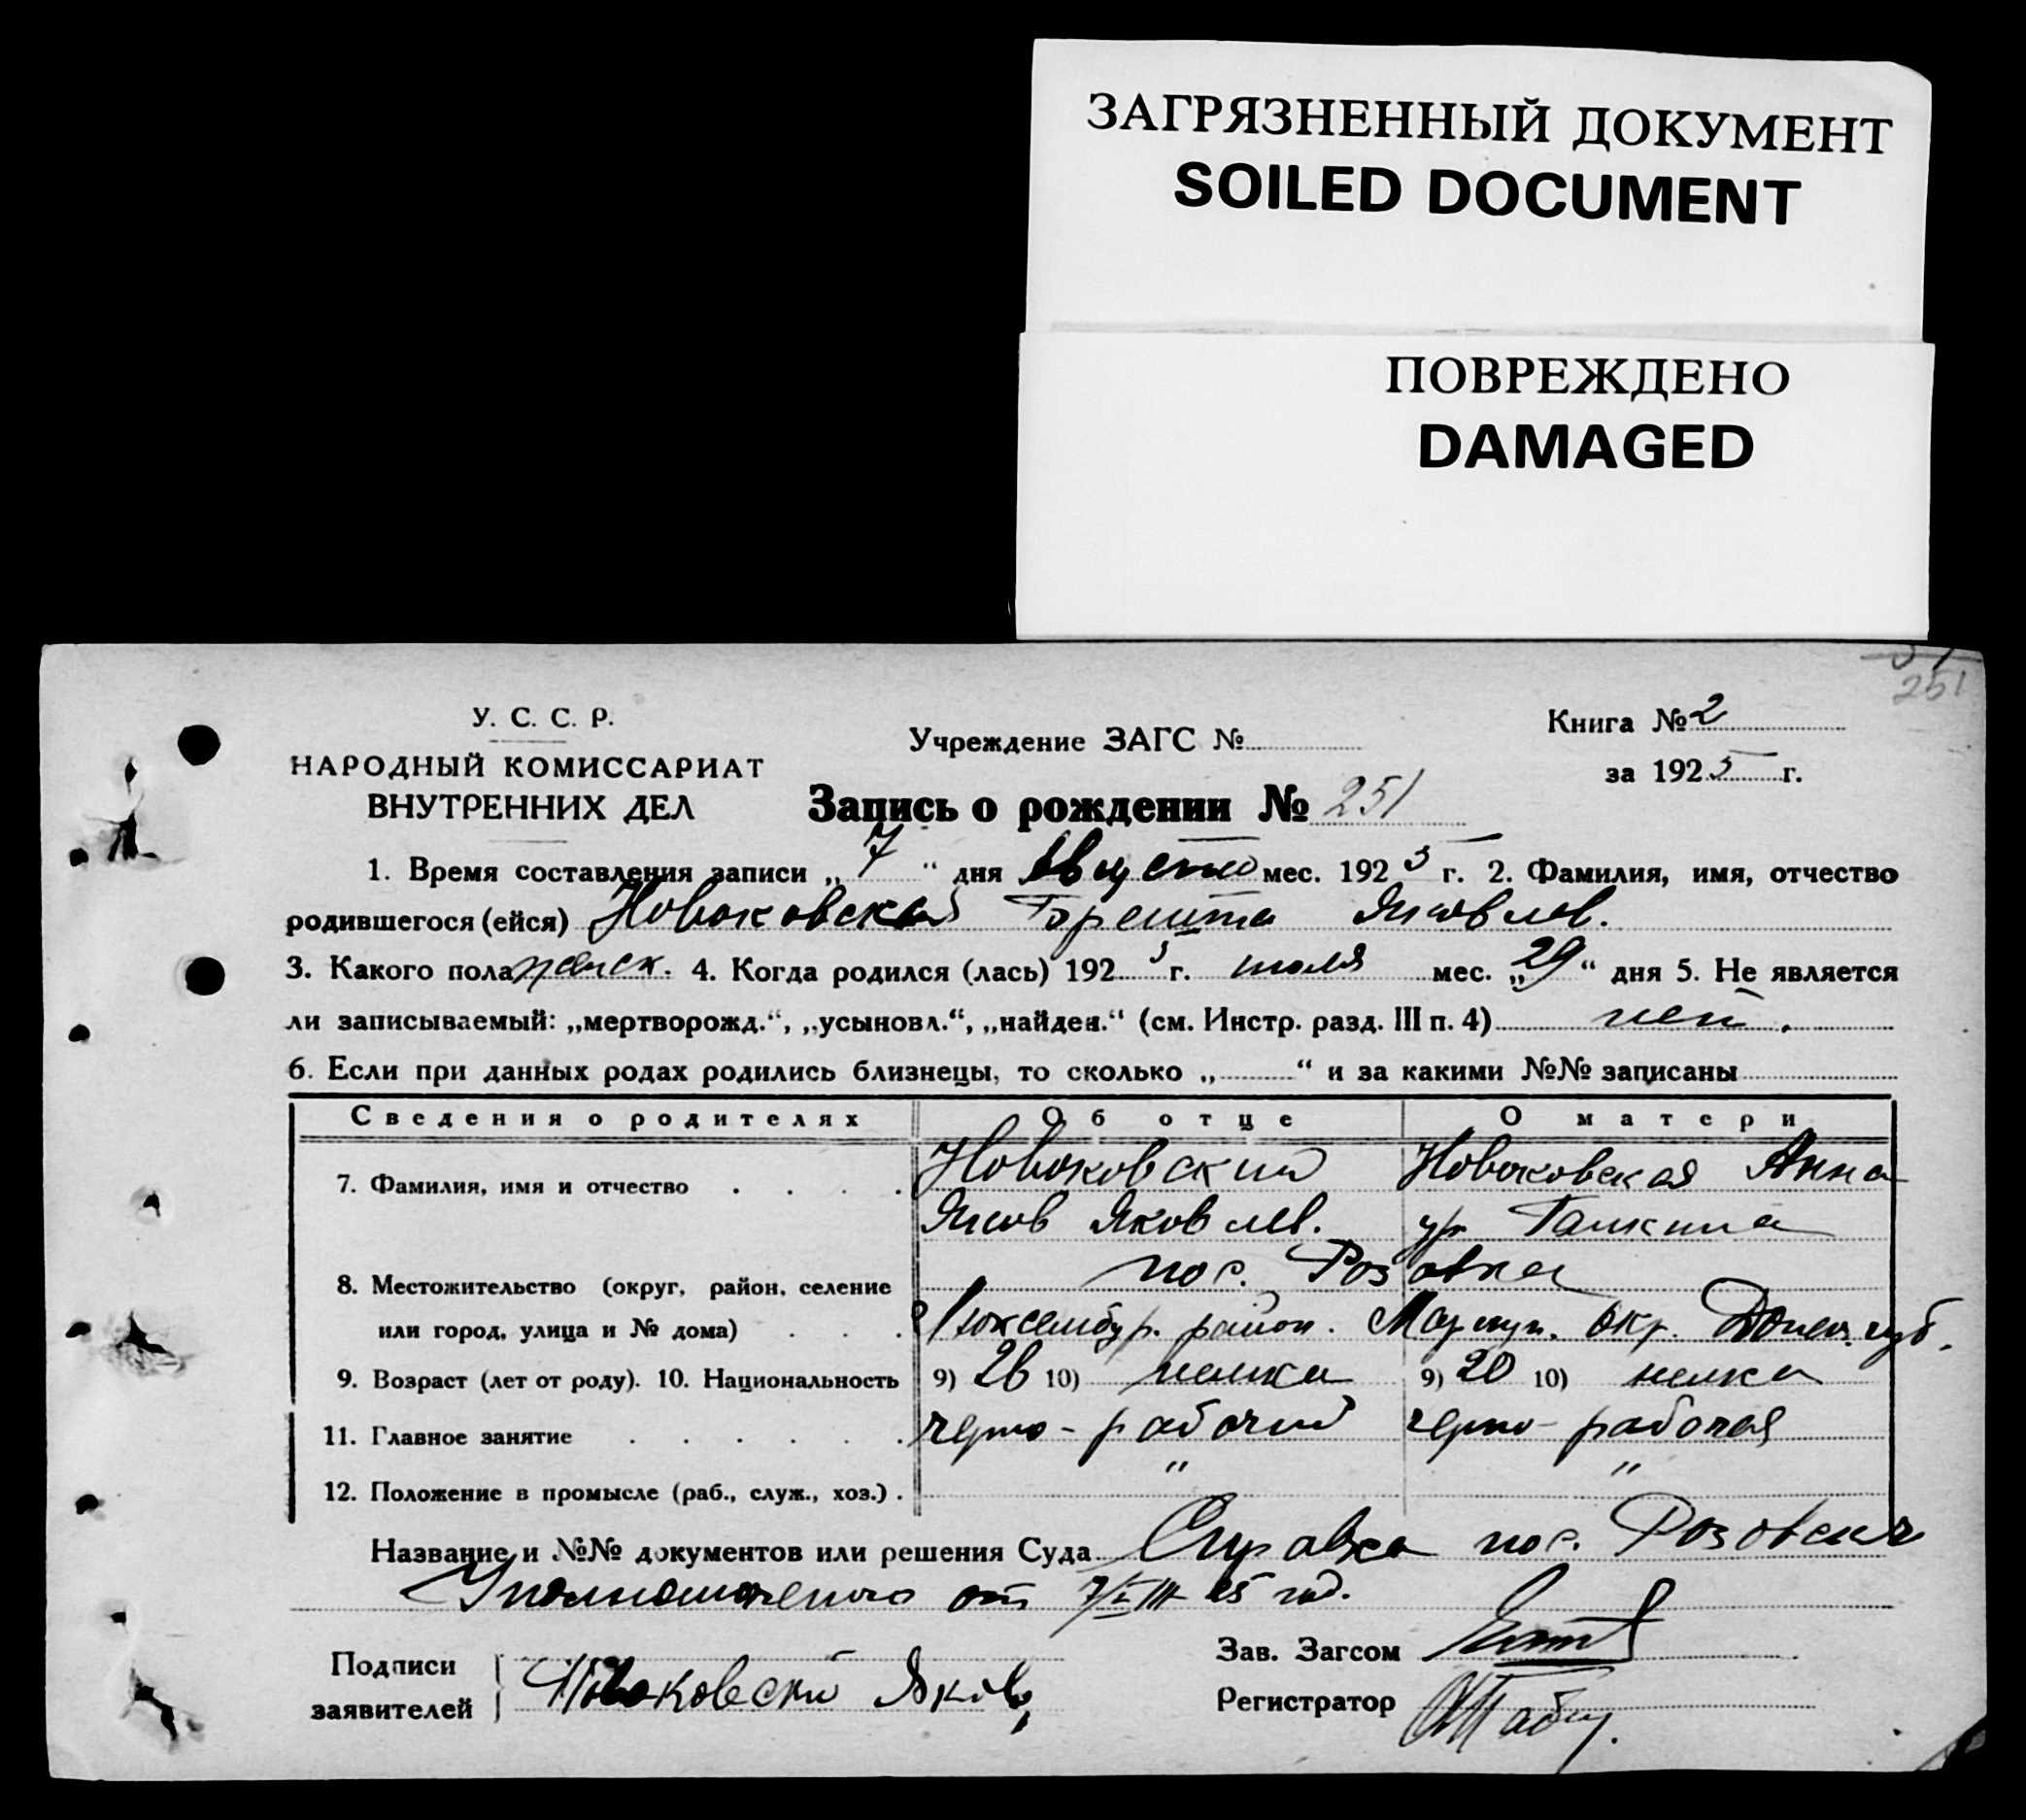 ЗАГРЯЗНЕННЫЙ ДОКУМЕНТ
SOILED DOCUMENT
ПОВРЕЖДЕНО
DAMAGED
251
У. С. С. Р.
НАРОДНЫЙ КОМИССАРИАТ
ВНУТРЕННИХ ДЕЛ
Учреждение ЗАГС №
Книга № 2
за 1925 г.
Запись о рождении № 251
1. Время составления записи „7“ дня августа мес. 1925 г. 2. Фамилия, имя, отчество
родившегося (ейся) Новоковская Яковлев.
3. Какого пола женск. 4. Когда родился (лась) 1925 г. июля мес. „29“ дня 5. Не является
ли записываемый: „мертворожд.“, „усыновл.“, „найден.“ (см. Инстр. разд. III п. 4) нет.
6. Если при данных родах родились близнецы, то сколько „ “ и за какими №№ записаны
Сведения о родителях Об отце О матери
7. Фамилия, имя и отчество Новоковский Новоковская Анна
Яков Яковлев. ур. Галкина
пос. Розовка
8. Местожительство (округ, район, селение
или город, улица и № дома) Люксембур. район. Мариуп. окр. Донец. губ.
9. Возраст (лет от роду). 10. Национальность 9) 26 10) немка 9) 20 10) немка
11. Главное занятие черно-рабочий черно-рабочая
12. Положение в промысле (раб., служ., хоз.) " "
Название и №№ документов или решения Суда Справка пос. Розовск
Уполномоченого от 7/VIII 25 год.
Подписи
заявителей Новаковски Яков
Зав. Загсом
Регистратор